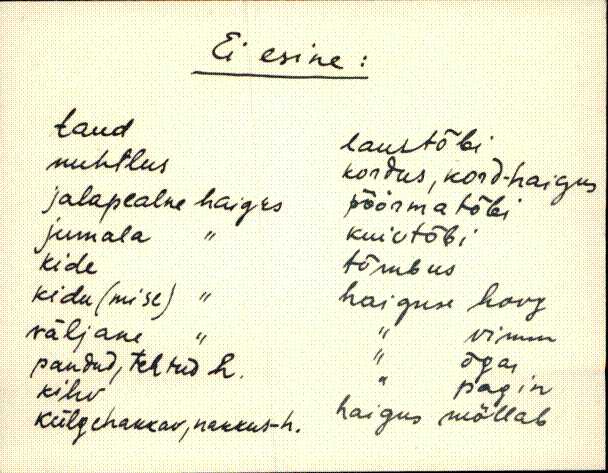 Ei esine:
taud
nuhtlus
jalapealne haigus
jumala "
kide
kidu(mise) "
väljane "
pandud, tehtud h.
kihv
külgehakkav, nakkus-h.
laustõbi
kordus, kord-haigus
pöörmatõbi
kuivtõbi
tõmbus
haiguse hoog
" vimm
" õgas
" pagin
haigus möllab